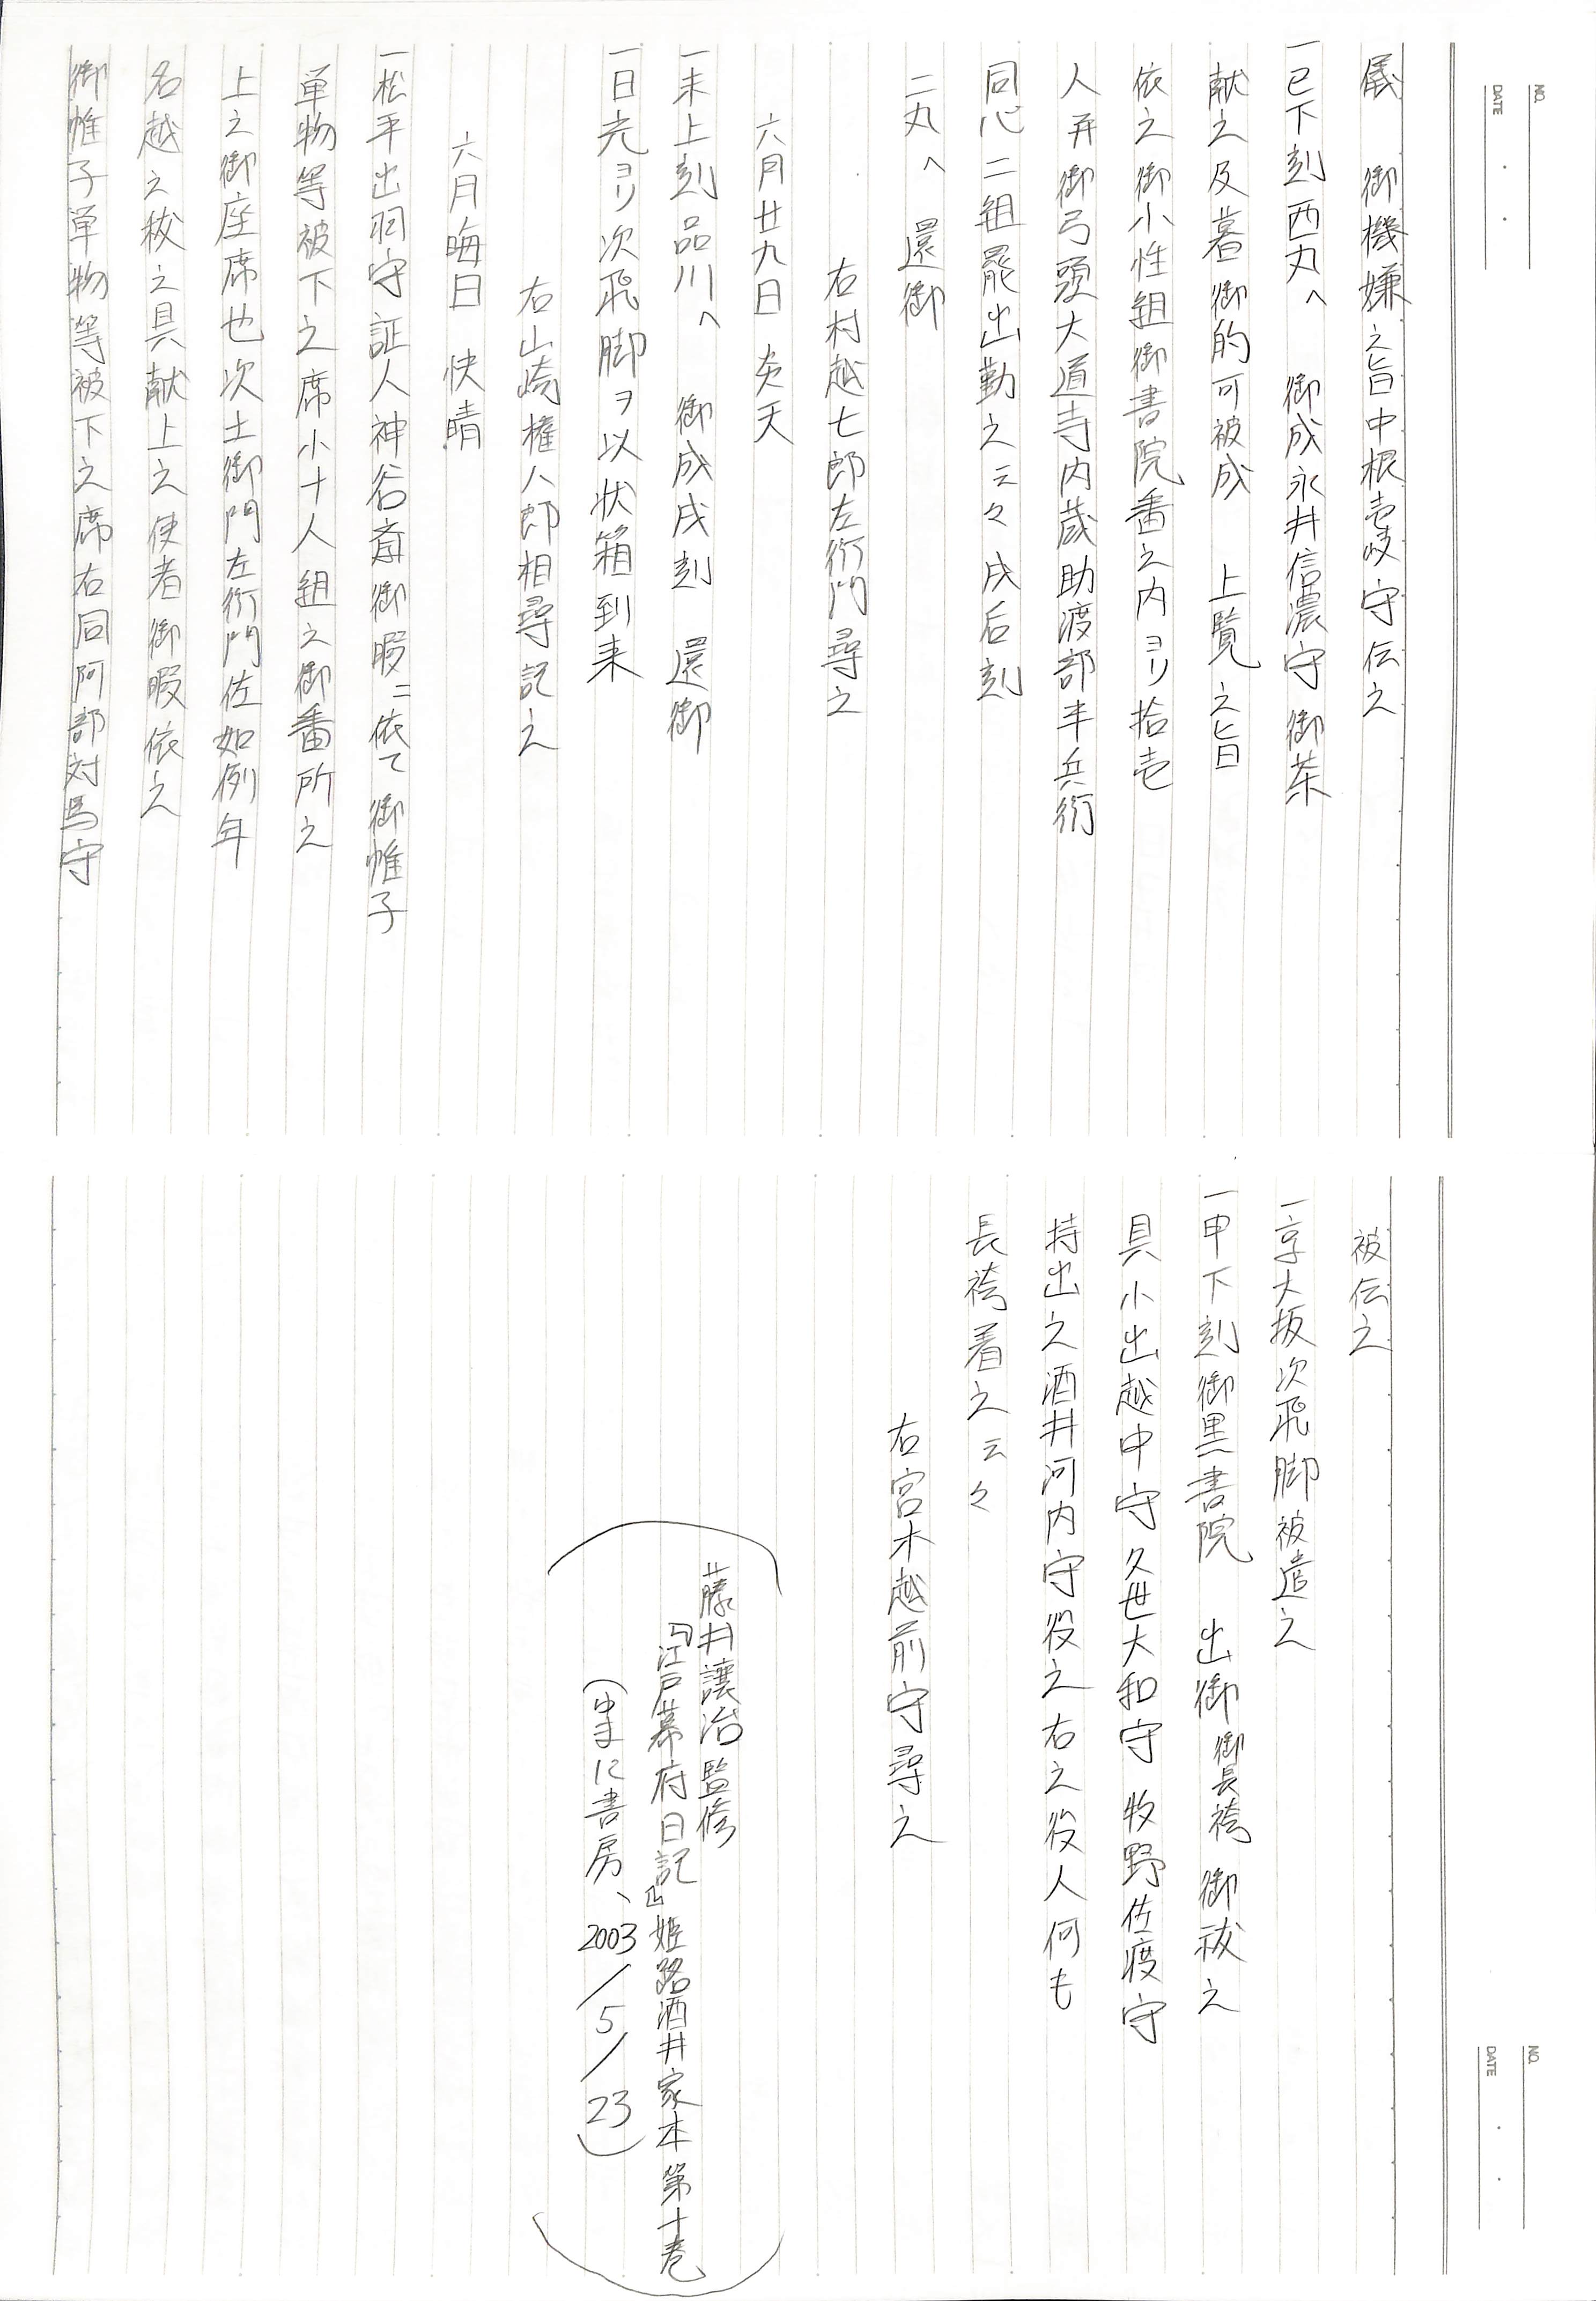 NO.
DATE
儀　御機嫌之旨中根壱岐守伝之
一已下刻西丸へ　御成永井信濃守御茶
献之及暮御的可被成　上覧之旨
依之御小性組御書院番之内ヨリ拾壱
人并御弓頭大道寺内蔵助渡部半兵衛
同心二組罷出勤之云々戌后刻
二丸へ　還御
右村越七郎左衛門尋之
六月廿九日　炎天
一未上刻品川へ　御成戌刻　還御
一日光ヨリ次飛脚ヲ以状箱到来
右山崎権八郎相尋記之
六月晦日　快晴
一松平出羽守証人神谷斎御暇ニ依て御帷子
単物等被下之席小十人組之御番所之
上之御座席也次土御門左衛門佐如例年
名越之秡之具献上之使者御暇依之
御帷子単物等被下之席右同阿部対馬守
NO.
DATE
被伝之
一京大坂次飛脚被遣之
一申下刻御黒書院　出御御長袴御祓之
具小出越中守久世大和守牧野佐渡守
持出之酒井河内守役之右之役人何も
長袴着之云々
右宮木越前守尋之
藤井讓治監修
『江戸幕府日記』姫路酒井家本第十巻
（ゆまに書房、2003/5/23）